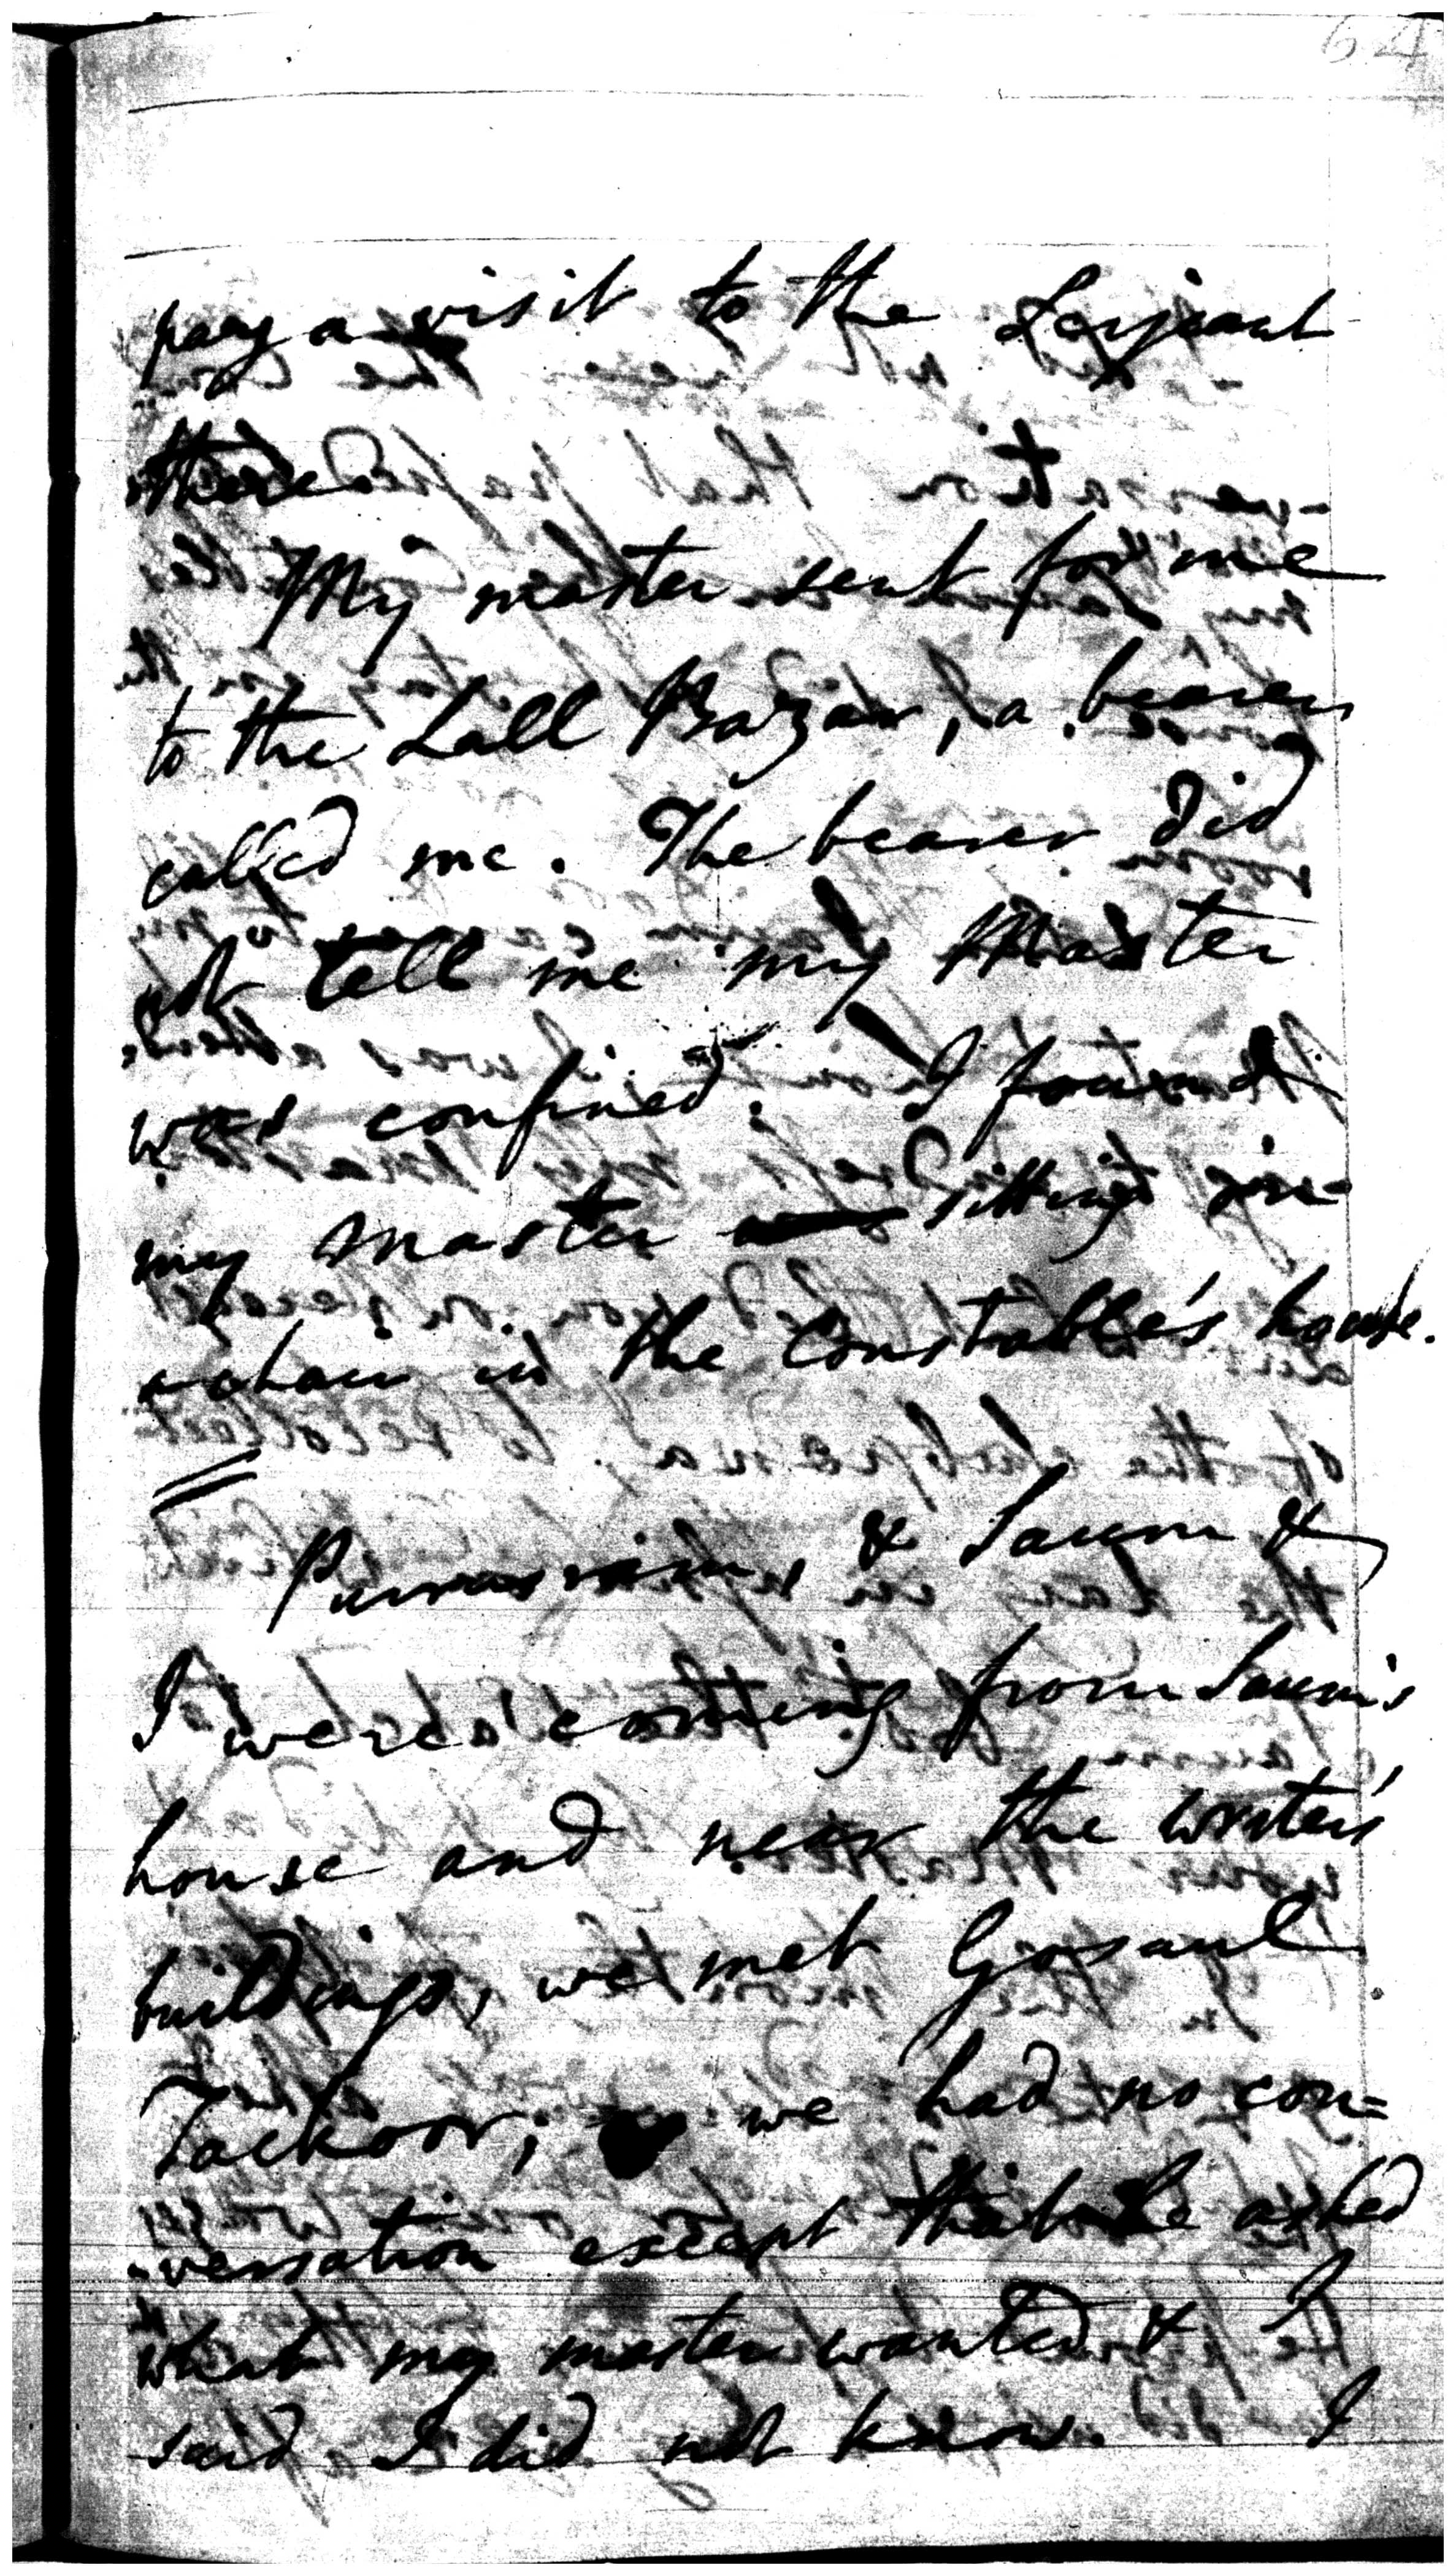 64
pay a visit to the Serjeant
there
My master sent for me
to the Lall Bazar, a bearer
called me. The bearer did
not tell me my Master
was confined. I found
my master sitting in
a chair in the Constable's house.
& Saum &
I were coming from Saum's
house and near the writer's
buildings, we met Gosaul
Tackoor; we had no con=
-versation except that he asked
what my master wanted & I
said I did not know. I